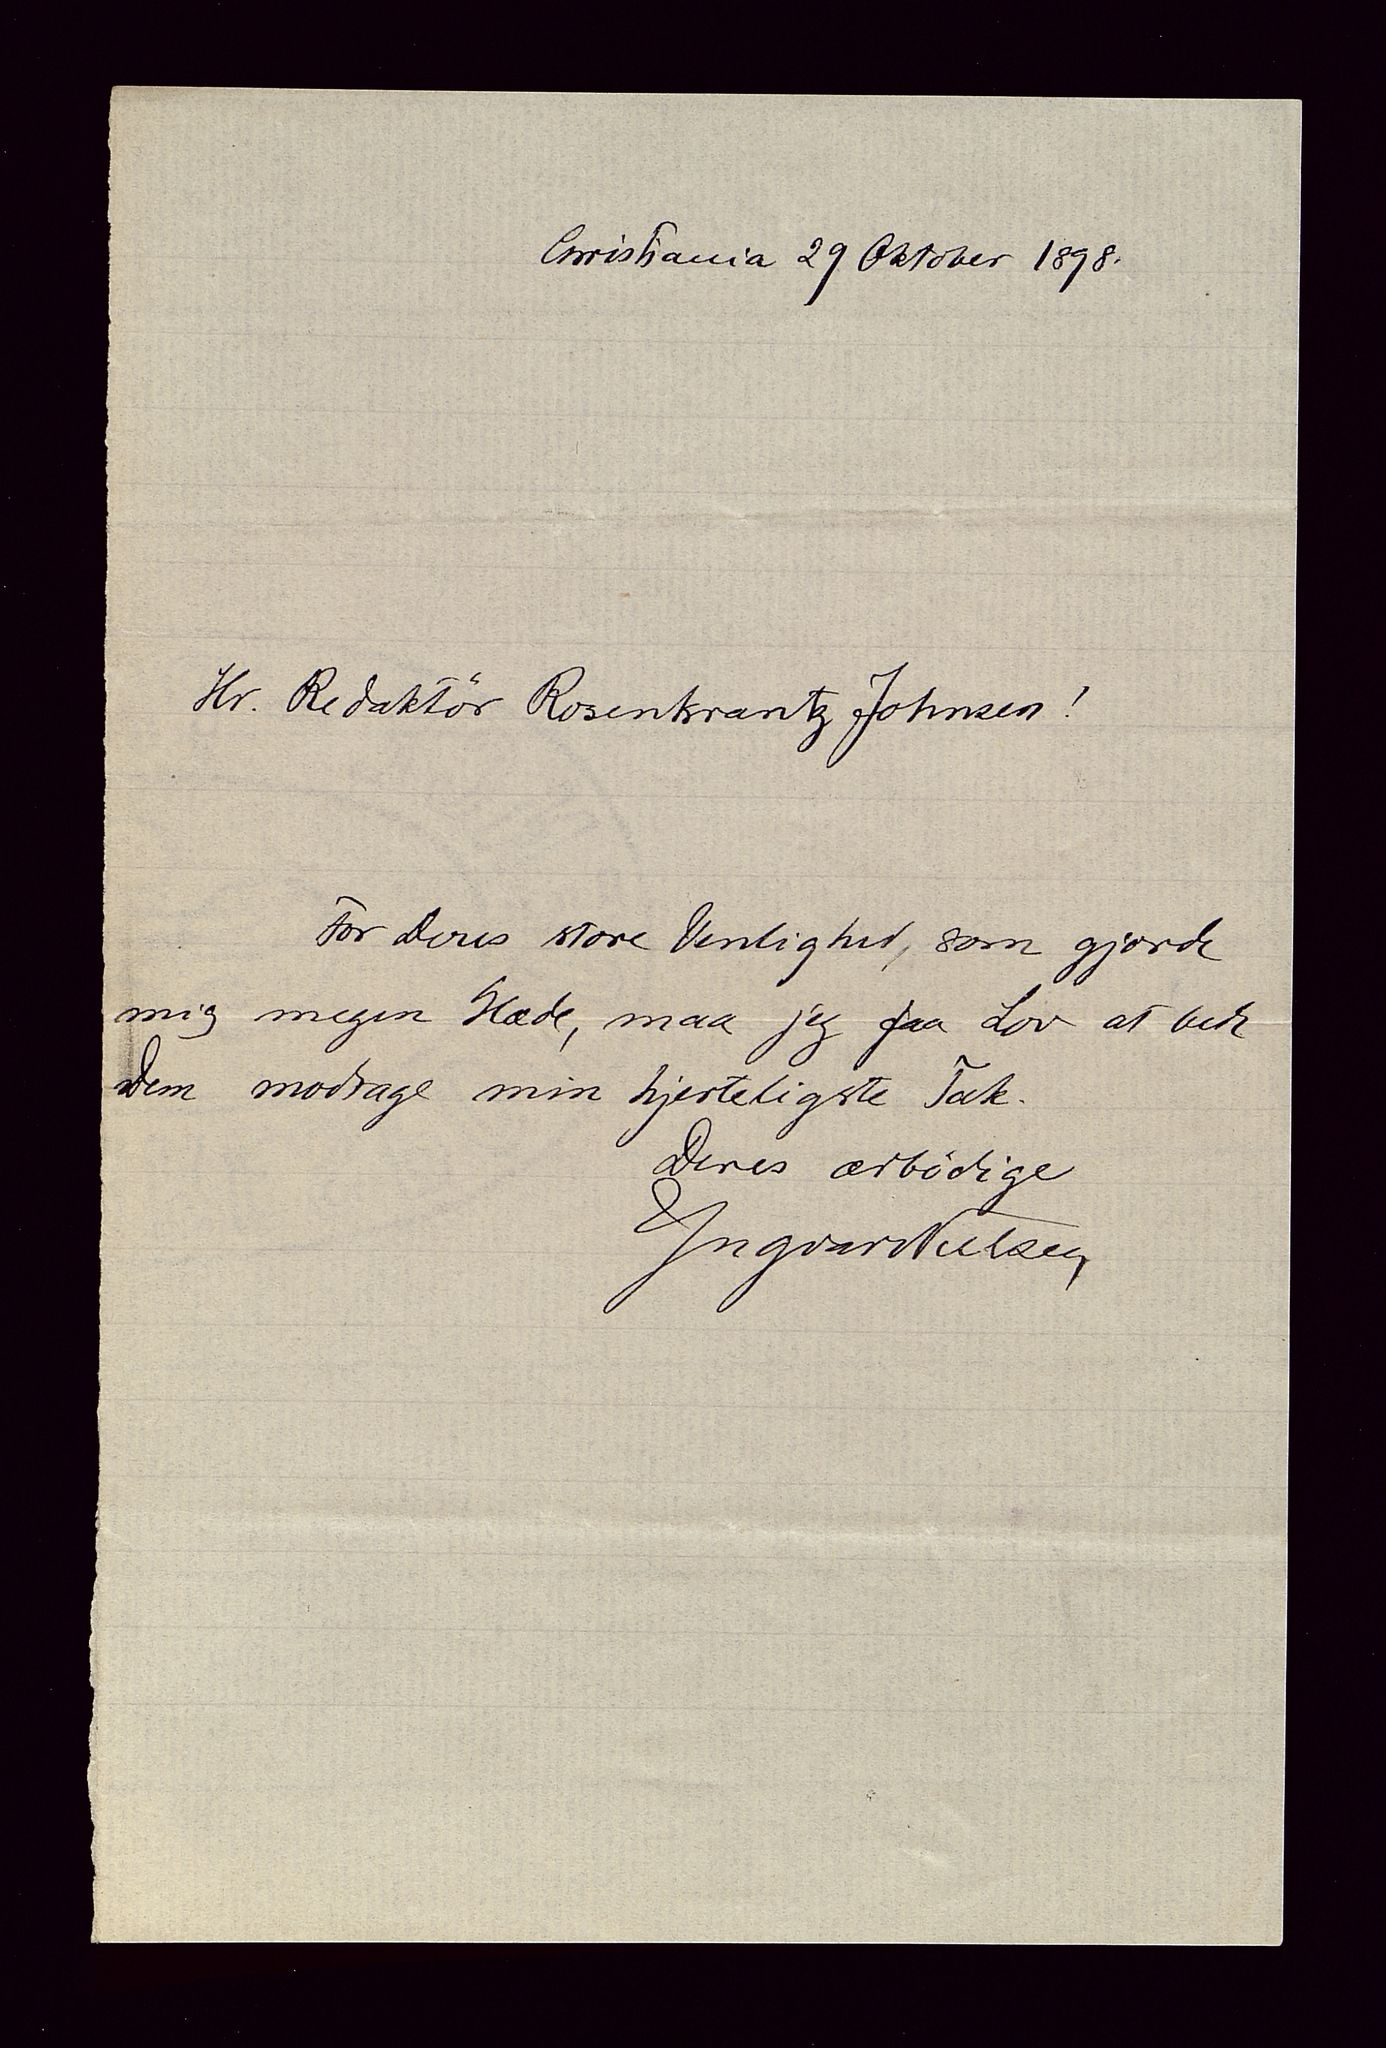 Christiania 29 Oktober 1898.
Hr. Redaktör Rosenkrantz Johnsen!
For Deres store Venlighed, som gjorde
mig megen Glæde, maa jeg faa Lov at bede
Dem modtage min hjerteligste Tak.
Deres ærbödige
Yngvar Nielsen